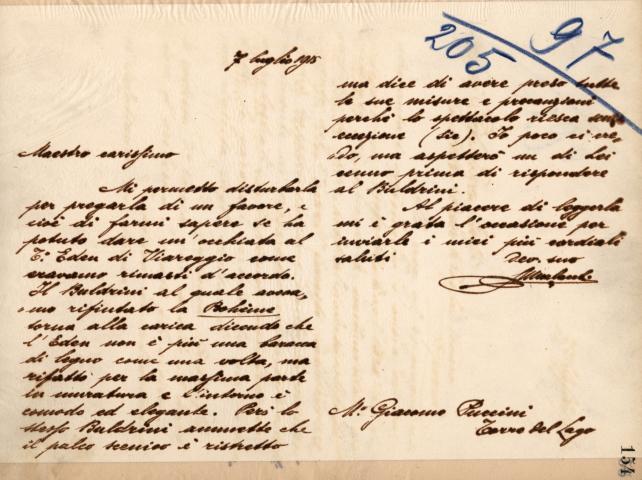 7 luglio 915
Maestro carissimo
Mi permetto disturbarla
per pregarla di un favore, e
cioè di farmi sapere se ha
potuto dare un'occhiata al
T: Eden di Viareggio come
eravamo rimasti d'accordo.
Il Baldrini al quale aveva,
mo rifiutato la Bohème
torna alla carica dicendo che
l'Eden non è più una baracca
di legno come una volta, ma
rifatto per la massima parte
in muratura e l'interno è
comodo ed elegante. Però lo
stesso Baldrini ammette che
il palco scenico è ristretto
ma dice di avere preso tutte
le sue misure e precauzioni
perchè lo spettacolo riesca senza
eccezione (sic). Io poco ci cre,
do, ma aspetterò un di Lei
cenno prima di rispondere
al Baldrini.
Al piacere di leggerla
mi è grata l'occasione per
inviarle i miei più cordiali
saluti
Dev. suo
Mo. Giacomo Puccini
Torre del Lago
205
97
154